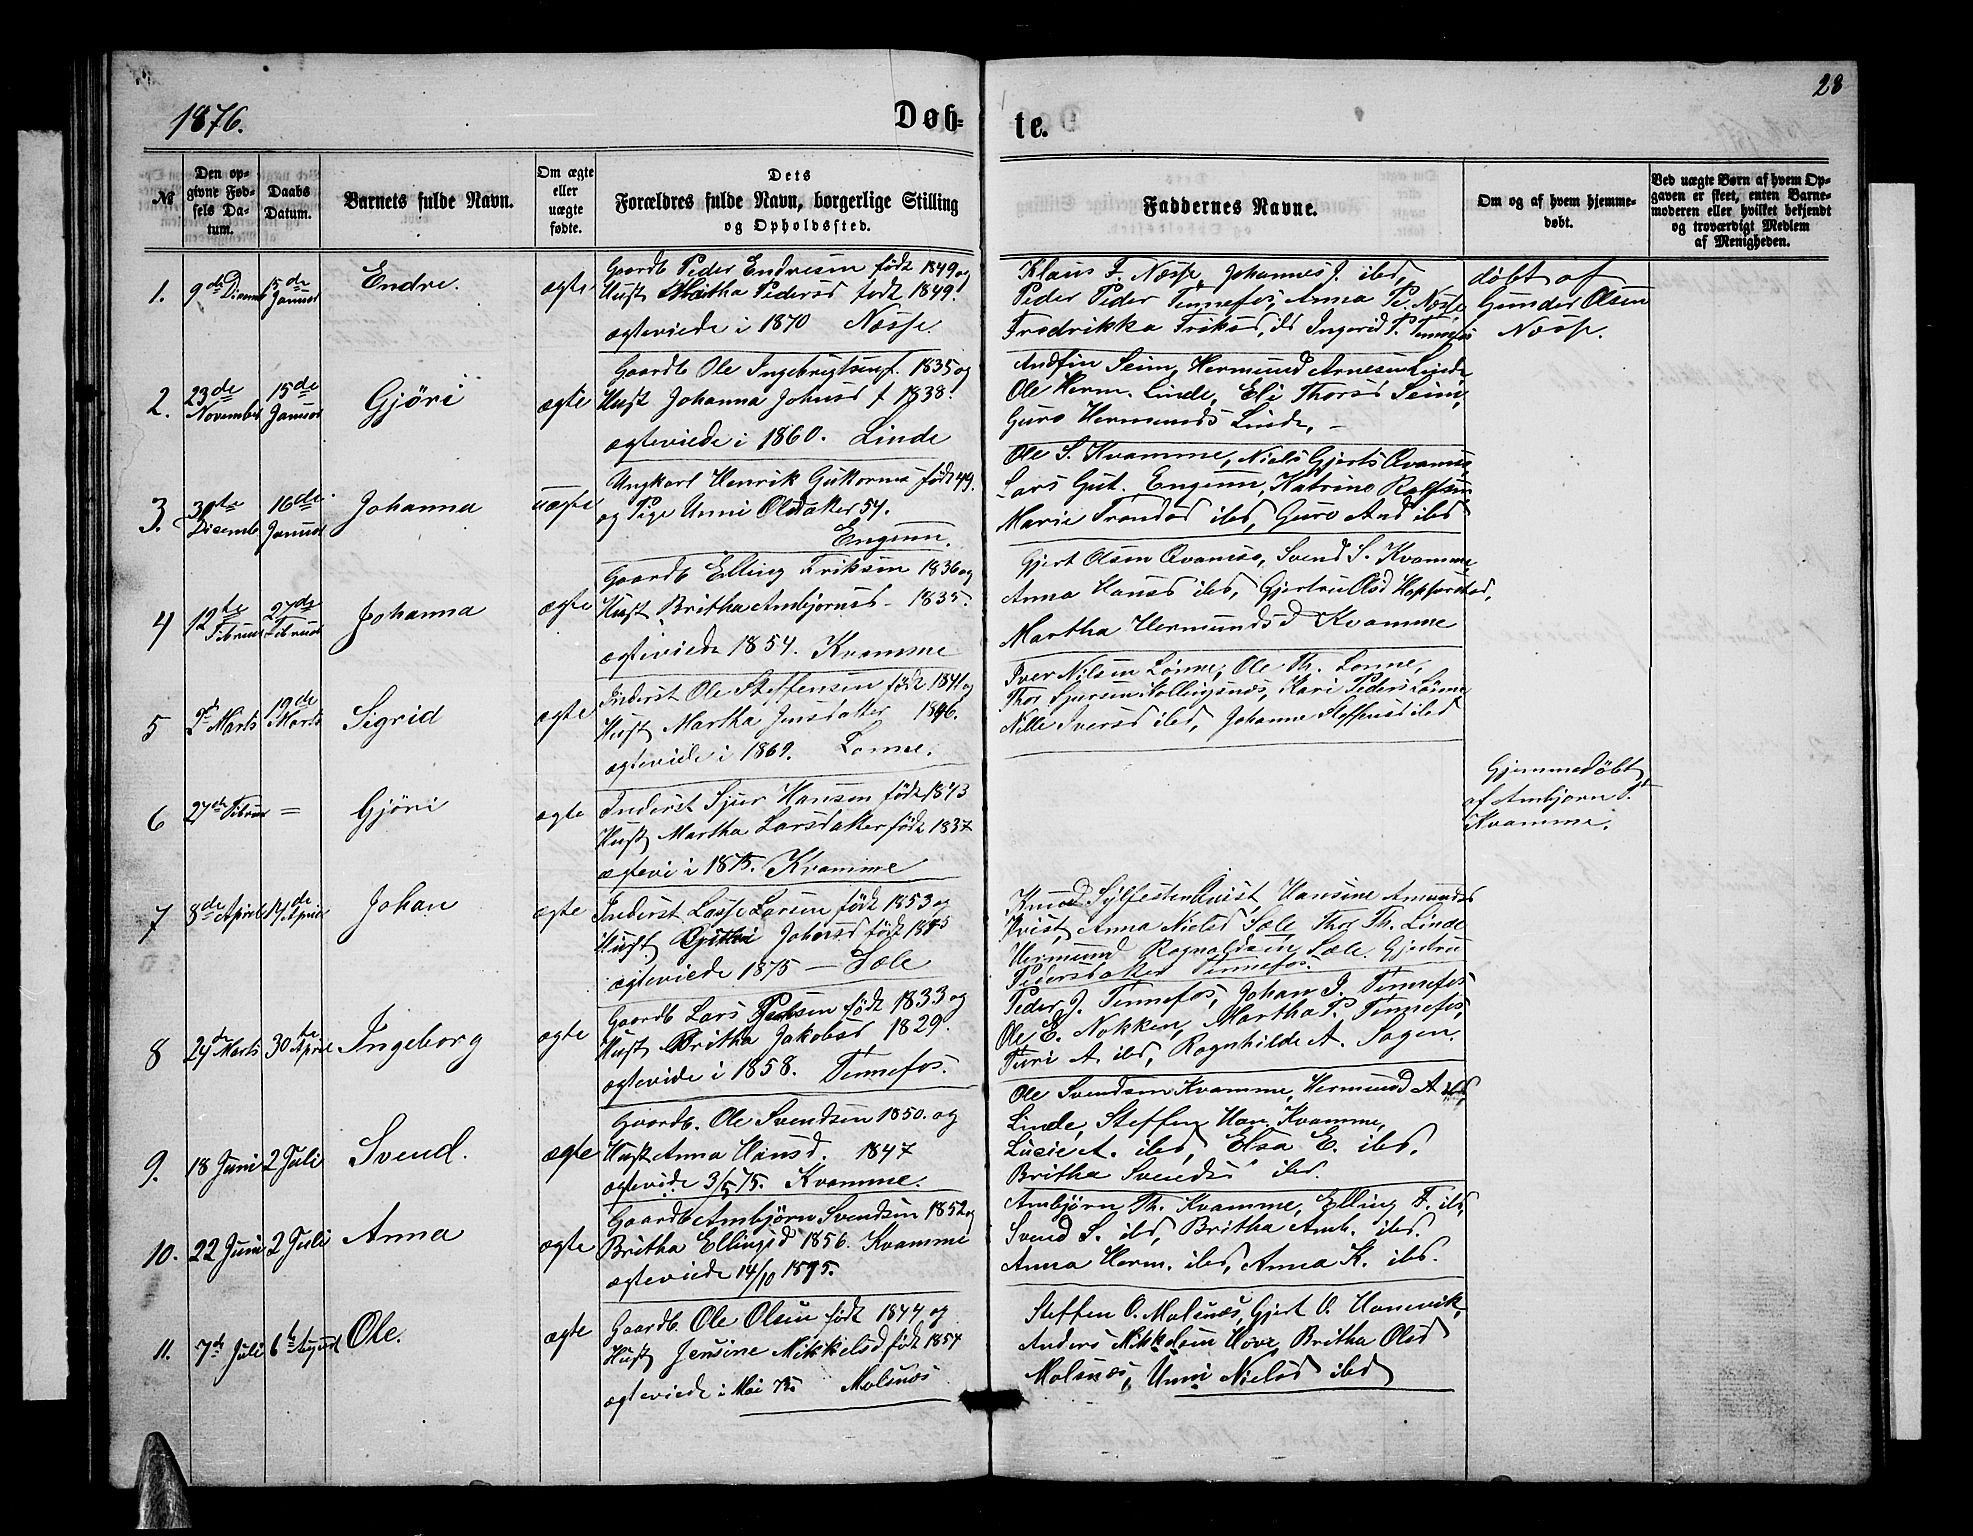 1876.
Døb-
te.
28
№
Den op-
givne Fød-
sels Da-
tum.
Daabs
Datum.
Barnets fulde Navn.
Om ægte
eller
uægte
fødte.
Dets
Forældres fulde Navn, borgerlige Stilling
og Opholdssted.
Faddernes Navne.
Om og af hvem hjemme-
døbt.
Ved uægte Børn af hvem Op-
gaven er skeet, enten Barne-
moderen eller hvilket bekjendt
og troværdigt Medlem
af Menigheden.
1.
9de Decemb
15de Januar
Endre.
ægte
Gaardb Peder Endresen født 1849 og
Hust Britha Pedersd født 1849.
ægteviede i 1870 Næsse.
Klaus F. Næsse, Johannes J. ibd,
Peder Peder Tennefos, Anna Pe. Næsse
Fredrikka Eriksd, ib Ingerid P. Tennefos
døbt af
Gunder Olsen
Næsse.
2.
23de November
15de Januar
Gjöri
ægte
Gaardb Ole Ingebrigtsen f. 1835 og
Hust Johanna Johnsd f 1838.
ægteviede i 1860. Linde
Andfin Seim, Hermund Arnesen Linde
Ole Herm. Linde, Eli Thorsd Seim,
Guro Hermunds Linde, -
3.
31te Decemb
16de Januar
Johanna
uægte
Ungkarl Henrik Guttormse født 49.
og Pige Unni Olsdatter 54.
Engum.
Ole S. Kvamme, Niels Gjerts Qvamsø,
Lars Gut. Engum, Katrine Rolfsen
Marie Trondsd ibd, Guro And ibd
4
12te Februar
27de Februar
Johanna
ægte
Gaardb Elling Eriksen 1836 og
Hust Britha Ambjørnsd - 1835.
ægteviede 1854. Kvamme
Gjert Olsen Qvamsø, Svend S. Kvamme,
Anna Hansd ibd, Gjertru Olsd Hopperstad,
Martha Hermundsd Kvamme
5
2de Marts
19de Marts
Sigrid
ægte
Inderst Ole Steffensen født 1841 og
Hust Martha Jensdatter 1846.
ægteviede i 1869. Lønne.
Iver Nilsen Lønne, Ole Th. Lønne,
Thor Sjursen Nollingsnæs, Kari Peders Lønne
Nille Iversd ibd, Johanne Steffensd ibd
6
27de Februar
=
Gjöri
ægte
Inderst Sjur Hansen født 1843
Hust Martha Larsdatter født 1837
ægtevi i 1875. Kvamme
Hjemmedøbt
af Ambjørn
Kvamme.
7
8de April
14de April
Johan
ægte
Inderst Lasse Larsen født 1853 og
Hust Johansd født 1845
ægteviede 1875 — Sæle
Knud Sylfesten Qvist, Hansine Amunds
Kvist, Anna Nielsd Sæle, Thor Th. Linde
Hermund Ragnaldsen Sæle, Gjertru
Pedersdatter Tennefos.
8
24de Marts
30te April
Ingeborg
ægte
Gaardb Lars Pedersen født 1833 og
Hust Britha Jakobsd 1829.
ægtevide i 1858. Tennefos.
Peder J. Tennefos, Johan J. Tennefos
Ole E. Nokken, Martha P. Tennefos,
Turi A. ibd, Ragnhilde A. Sagen.
9.
18 Juni
2 Juli
Svend.
ægte
Gaardb. Ole Svendsen 1850. og
Hust Anna Hansd. 1847
ægtevide 3/5 75. Kvamme.
Ole Svendsen Kvamme, Hermund A
Linde, Steffen Han. Kvamme,
Lucie A. ibd, Elsa E. ibd,
Britha Svends ibd.
10.
22 Juni
2 Juli
Anna
ægte
Gaardb Ambjörn Svendsen 1852 og
Britha Ellingsd 1856. Kvamme
ægteviede 14/10 1875.
Ambjörn Th. Kvamme, Elling E. ibd,
Svend S. ibd, Britha Amb. ibd.
Anna Herm. ibd, Anna K. ibd.
11.
7de Juli
6te August
Ole.
ægte
Gaardb. Ole Olsen født 1844 og
Hust Jensine Mikkelsd født 1854
ægteviede i Mai 75. Molsnæs
Steffen O. Molsnæs, Gjert O. Hanevik,
Anders Mikkelsen Hove, Britha Olsd
Molsnæs, Unni Nielsd ibd